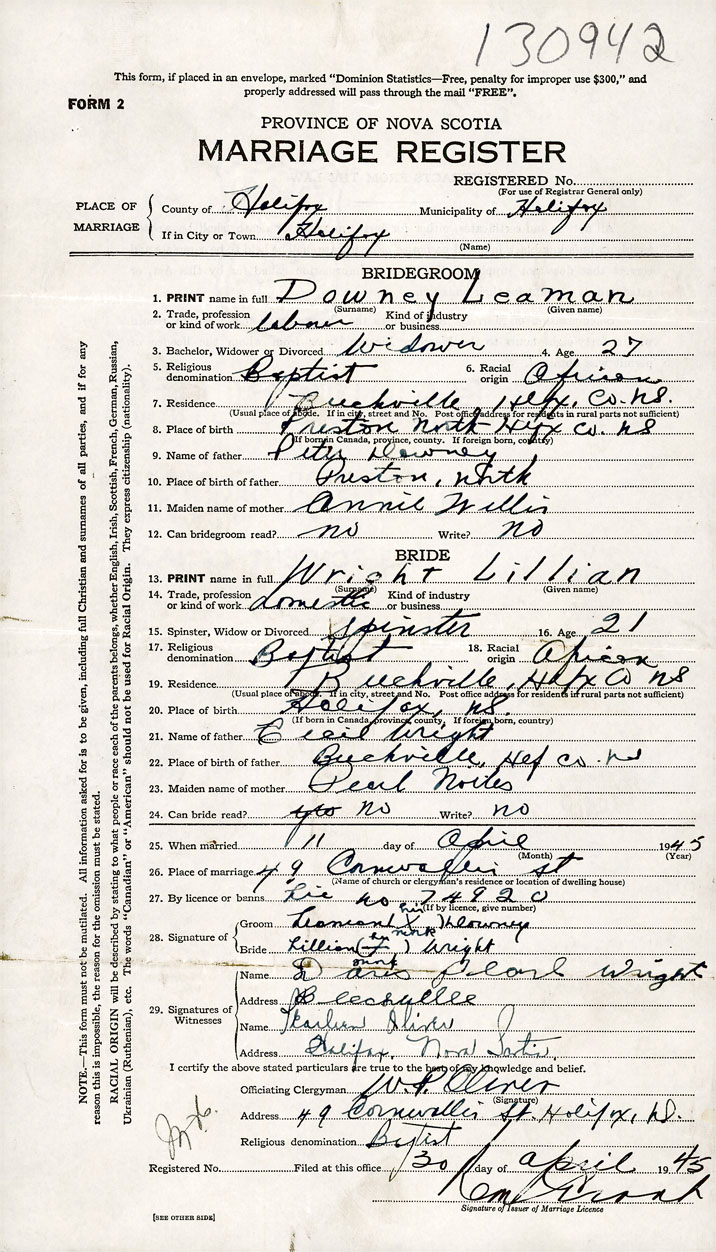 130942
This form, if placed in an envelope, marked “Dominion Statistics—Free, penalty for improper use $300,” and
properly addressed will pass through the mail “FREE”.
FORM 2
PROVINCE OF NOVA SCOTIA
MARRIAGE REGISTER
REGISTERED No.
(For use of Registrar General only)
PLACE OF MARRIAGE
County of Halifax Municipality of Halifax
If in City or Town Halifax
(Name)
BRIDEGROOM
1. PRINT name in full Downey Leaman
(Surname) (Given name)
2. Trade, profession or kind of work labour Kind of industry or business
3. Bachelor, Widower or Divorced Widower 4. Age 27
5. Religious denomination Baptist 6. Racial origin African
7. Residence Beechville, Hfx. Co. N.S.
(Usual place of abode. If in city, street and No. Post office address for residents in rural parts not sufficient)
8. Place of birth Preston North Hfx Co. NS
(If born in Canada, province, county. If foreign born, country)
9. Name of father Peter Downey
10. Place of birth of father Preston, North
11. Maiden name of mother Annie Willis
12. Can bridegroom read? no Write? no
BRIDE
13. PRINT name in full Wright Lillian
(Surname) (Given name)
14. Trade, profession or kind of work domestic Kind of industry or business
15. Spinster, Widow or Divorced Spinster 16. Age 21
17. Religious denomination Baptist 18. Racial origin African
19. Residence Beechville, Hfx Co NS
(Usual place of abode. If in city, street and No. Post office address for residents in rural parts not sufficient)
20. Place of birth Halifax, NS.
(If born in Canada, province, county. If foreign born, country)
21. Name of father Cecil Wright
22. Place of birth of father Beechville, Hfx Co. NS
23. Maiden name of mother Pearl
24. Can bride read? yes no Write? no
25. When married 11 day of April 1945
(Month) (Year)
26. Place of marriage 49 Cornwallis St
(Name of church or clergyman's residence or location of dwelling house)
27. By licence or banns Lic no 74920
(If by licence, give number)
28. Signature of
Groom Leaman (X) Downey
his mark
Bride Lillian (X) Wright
her mark
29. Signatures of Witnesses
Name Doris Pearl Wright
Address Beechville
Name Oliver
Address Halifax, Nova Scotia.
I certify the above stated particulars are true to the best of my knowledge and belief.
Officiating Clergyman W. P. Oliver
(Signature)
Address 49 Cornwallis St. Halifax, N.S.
Religious denomination Baptist
Registered No. Filed at this office 30 day of April 1945
Signature of Issuer of Marriage Licence
[SEE OTHER SIDE]
NOTE.—This form must not be mutilated. All information asked for is to be given, including full Christian and surnames of all parties, and if for any
reason this is impossible, the reason for the omission must be stated.
RACIAL ORIGIN will be described by stating to what people or race each of the parents belongs, whether English, Irish, Scottish, French, German, Russian,
Ukrainian (Ruthenian), etc. The words “Canadian” or “American” should not be used for Racial Origin. They express citizenship (nationality).